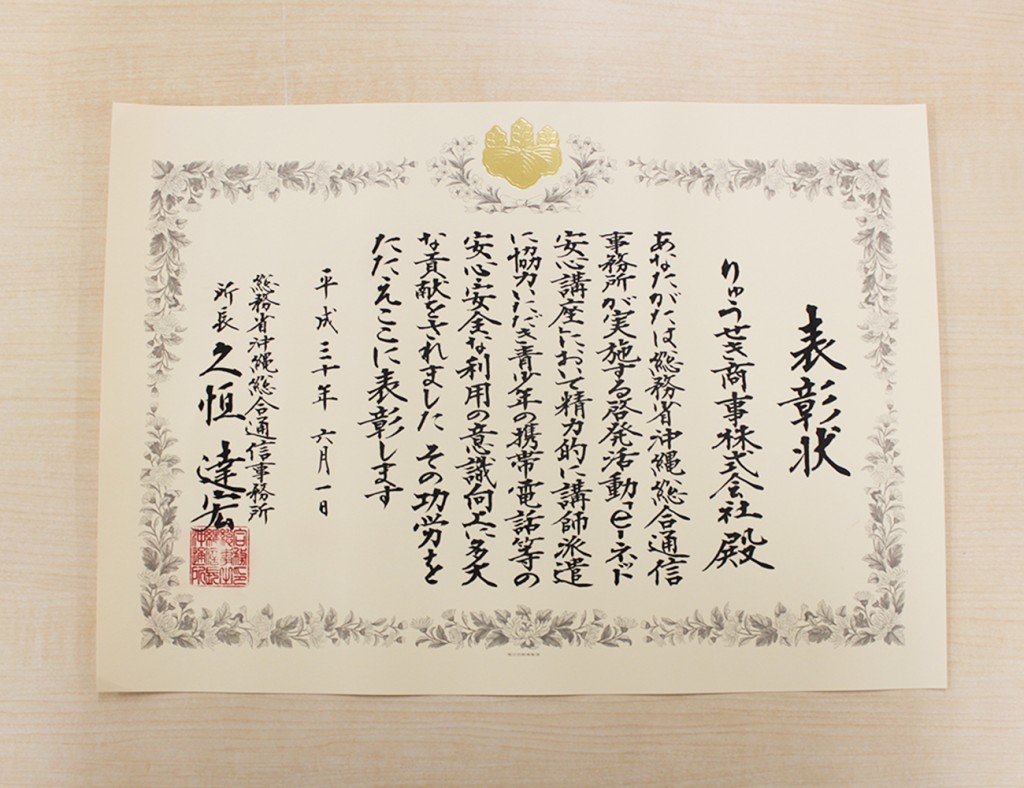 表彰状
りゅうせき商事株式会社 殿
あなたがたは総務省沖縄総合通信
事務所が実施する啓発活動「e-ネット
安心講座」において精力的に講師派遣
に協力いただき青少年の携帯電話等の
安心・安全な利用の意識向上に多大
な貢献をされました その功労を
たたえここに表彰します
平成三十年 六月一日
総務省沖縄総合通信事務所
所長 久恒 達宏